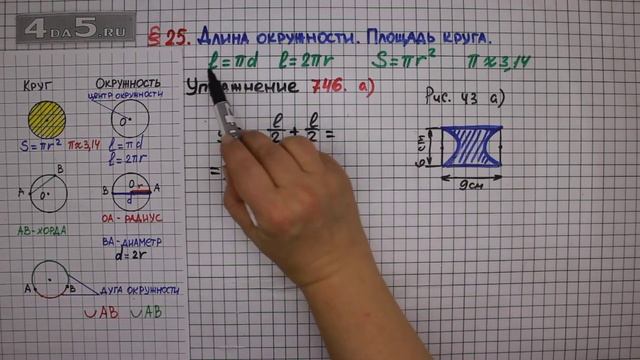 4DA5.RU
§ 25. Длина окружности. Площадь круга.
l = πd l = 2πr S = πr² π ≈ 3,14
746. а)
Рис. 43 а)
l/2 + l/2 =
=
6 см
9 см
Круг
Окружность
центр окружности
О
S = πr² π ≈ 3,14
l = πd
l = 2πr
А В
О
АВ - хорда
В О r А
d
ОА - радиус
ВА - диаметр
d = 2r
А В
дуга окружности
∪АВ ∪АВ